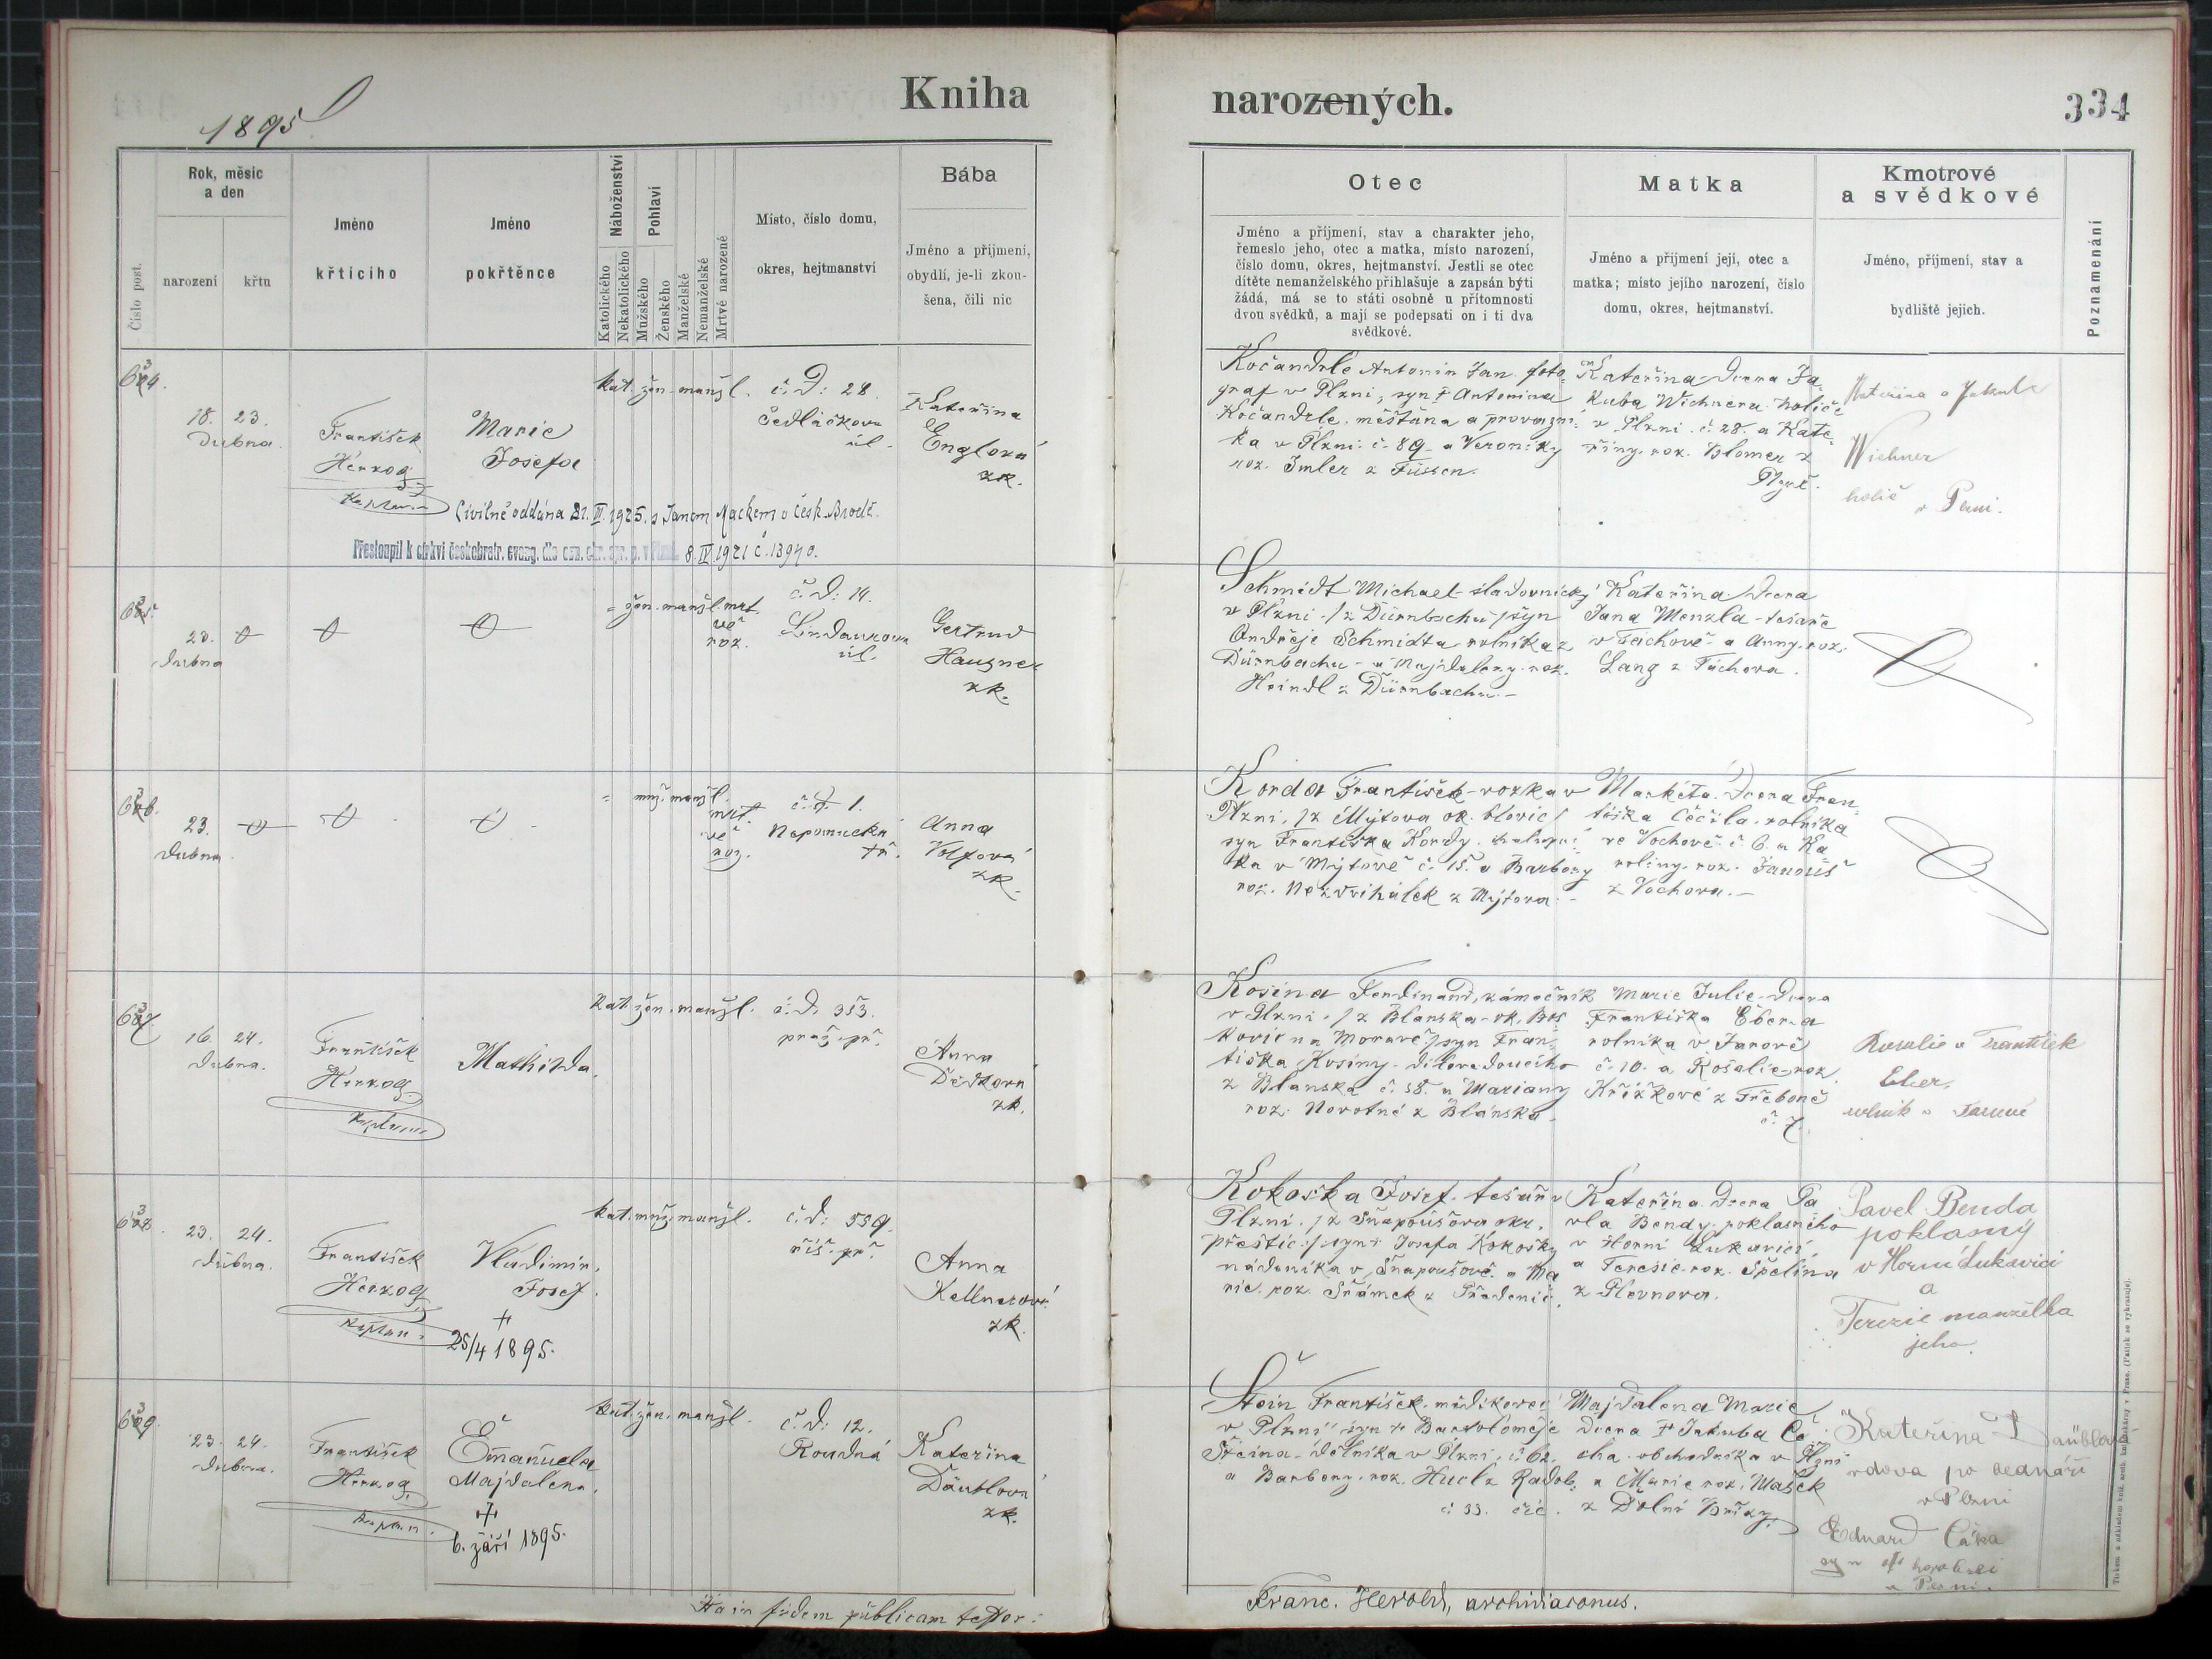 1895
Kniha
narozených.
334
Číslo post.
Rok, měsíc
a den
narození
křtu
Jméno
křticího
Jméno
pokřtěnce
Náboženství
Katolického
Nekatolického
Pohlaví
Mužského
Ženského
Manželské
Nemanželské
Mrtvé narozené
Místo, číslo domu,
okres, hejtmanství
Bába
Jméno a příjmení,
obydlí, je-li zkou-
šena, čili nic
Otec
Jméno a příjmení, stav a charakter jeho,
řemeslo jeho, otec a matka, místo narození,
číslo domu, okres, hejtmanství. Jestli se otec
dítěte nemanželského přihlašuje a zapsán býti
žádá, má se to státi osobně u přítomnosti
dvou svědků, a mají se podepsati on i ti dva
svědkové.
Matka
Jméno a příjmení její, otec a
matka; místo jejího narození, číslo
domu, okres, hejtmanství.
Kmotrové
a svědkové
Jméno, příjmení, stav a
bydliště jejich.
Poznamenání
18. 23.
Dubna
František
Herzog
Kaplan
Marie
Josefa
kat. žen. manžl.
č. D: 28.
Sedláčkova
úl.
Kateřina
Englová
zk.
Kočandrle Antonín Jan foto-
graf v Plzni, syn † Antonína
Kočandrle, měšťana a provazní-
ka v Plzni č. 89 a Veroniky
roz. Imler z Füssen.
Kateřina Dcera Ja-
kuba Wichnera holiče
v Plzni č. 28. a Kate-
řiny roz. Blomer z
Kateřina a Jakub
Wichner
holič v Plzni.
Civilně oddána 21. VI. 1925. s Janem Mackem v Česk. Brodě.
Přestoupil k církvi českobratr. evang. dle 8. IV 1921 č. 13940.
23.
Dubna
= žen. manžl. mrt.
vě
roz.
č. D: 14.
Lindaurova
úl.
Gertrud
Hausner
zk.
Schmidt Michael sladovnický
v Plzni /z Dürnbachu/ syn
Ondřeje Schmidta rolníka z
Dürnbachu a Majdaleny roz.
Heindl z Dürnbachu.
Kateřina Dcera
Jana Menzla tesaře
a Anny roz.
Lang z Tachova.
23.
Dubna
= muž. manžl.
mrt.
vě
roz.
č. D. 1.
Nepomucká
tř.
Anna
Volfová
zk.
Korda František vozka v
Plzni, /z Mýtova ok. blovic/
syn Františka Kordy
ka v Mýtově č. 15. a Barbory
roz. Nezvihálek z Mýtova.
Markéta Dcera Fran-
tiška Céčila rolníka
ve Vochově č. 6. a Ka-
roliny roz. Janouš
z Vochova.
16. 24.
Dubna.
František
Herzog
Kaplan
Mathilda.
kat. žen. manžl.
č. D. 353.
praž. př.
Anna
Dědková
zk.
Kosina Ferdinand, zámečník
v Plzni /z Blanska ok. Bos-
kovic na Moravě/ syn Fran-
tiška Kosiny dílovedoucího
z Blanska č. 58. a Mariany
roz. Novotné z Blanska.
Marie Julie Dcera
Františka Ebera
rolníka v Jarově
č. 10. a Rosalie roz.
Křížkové z Třeboně
č. 7.
Rosalie a František
Eber,
rolník v Jarově
23. 24.
Dubna.
František
Herzog
Kaplan.
Vladimír
Josef.
†
25/4 1895.
kat. muž. manžl.
č. D: 559.
říš. př.
Anna
Kellnerová
zk.
Kokoška Josef tesař v
Plzni /z Snopoušova okr.
přeštic/ syn Josefa Kokošky
nádeníka v Snopoušově a Ma-
rie roz. Šrámek z Předenic.
Kateřina Dcera Pa-
vla Bendy poklasného
v Horní Lukavici
a Teresie roz. Spělina
z Plevnova.
Pavel Benda
poklasný
v Horní Lukavici
a
Terezie manželka
jeho.
23. 24.
Dubna.
František
Herzog
Kaplan.
Emanuela
Majdalena.
†
6. září 1895.
kat. žen. manžl.
č. D: 12.
Roudná
Kateřina
Däublová
zk.
Štein František mědikovec
v Plzni syn † Bartoloměje
Šteina dělníka v Plzni, č. 62.
a Barbory roz. Hucl z Radob-
č 33. čic.
Majdalena Marie
Dcera † Jakuba Če-
cha obchodníka v Plzni
a Marie roz. Mašek
z Dolní Břízy.
Kateřina Däublová
vdova po bednáři
v Plzni
Eduard Cáka
v Plzni.
Ita in fidem publicam testor:
Franc. Herold, archidiaconus.